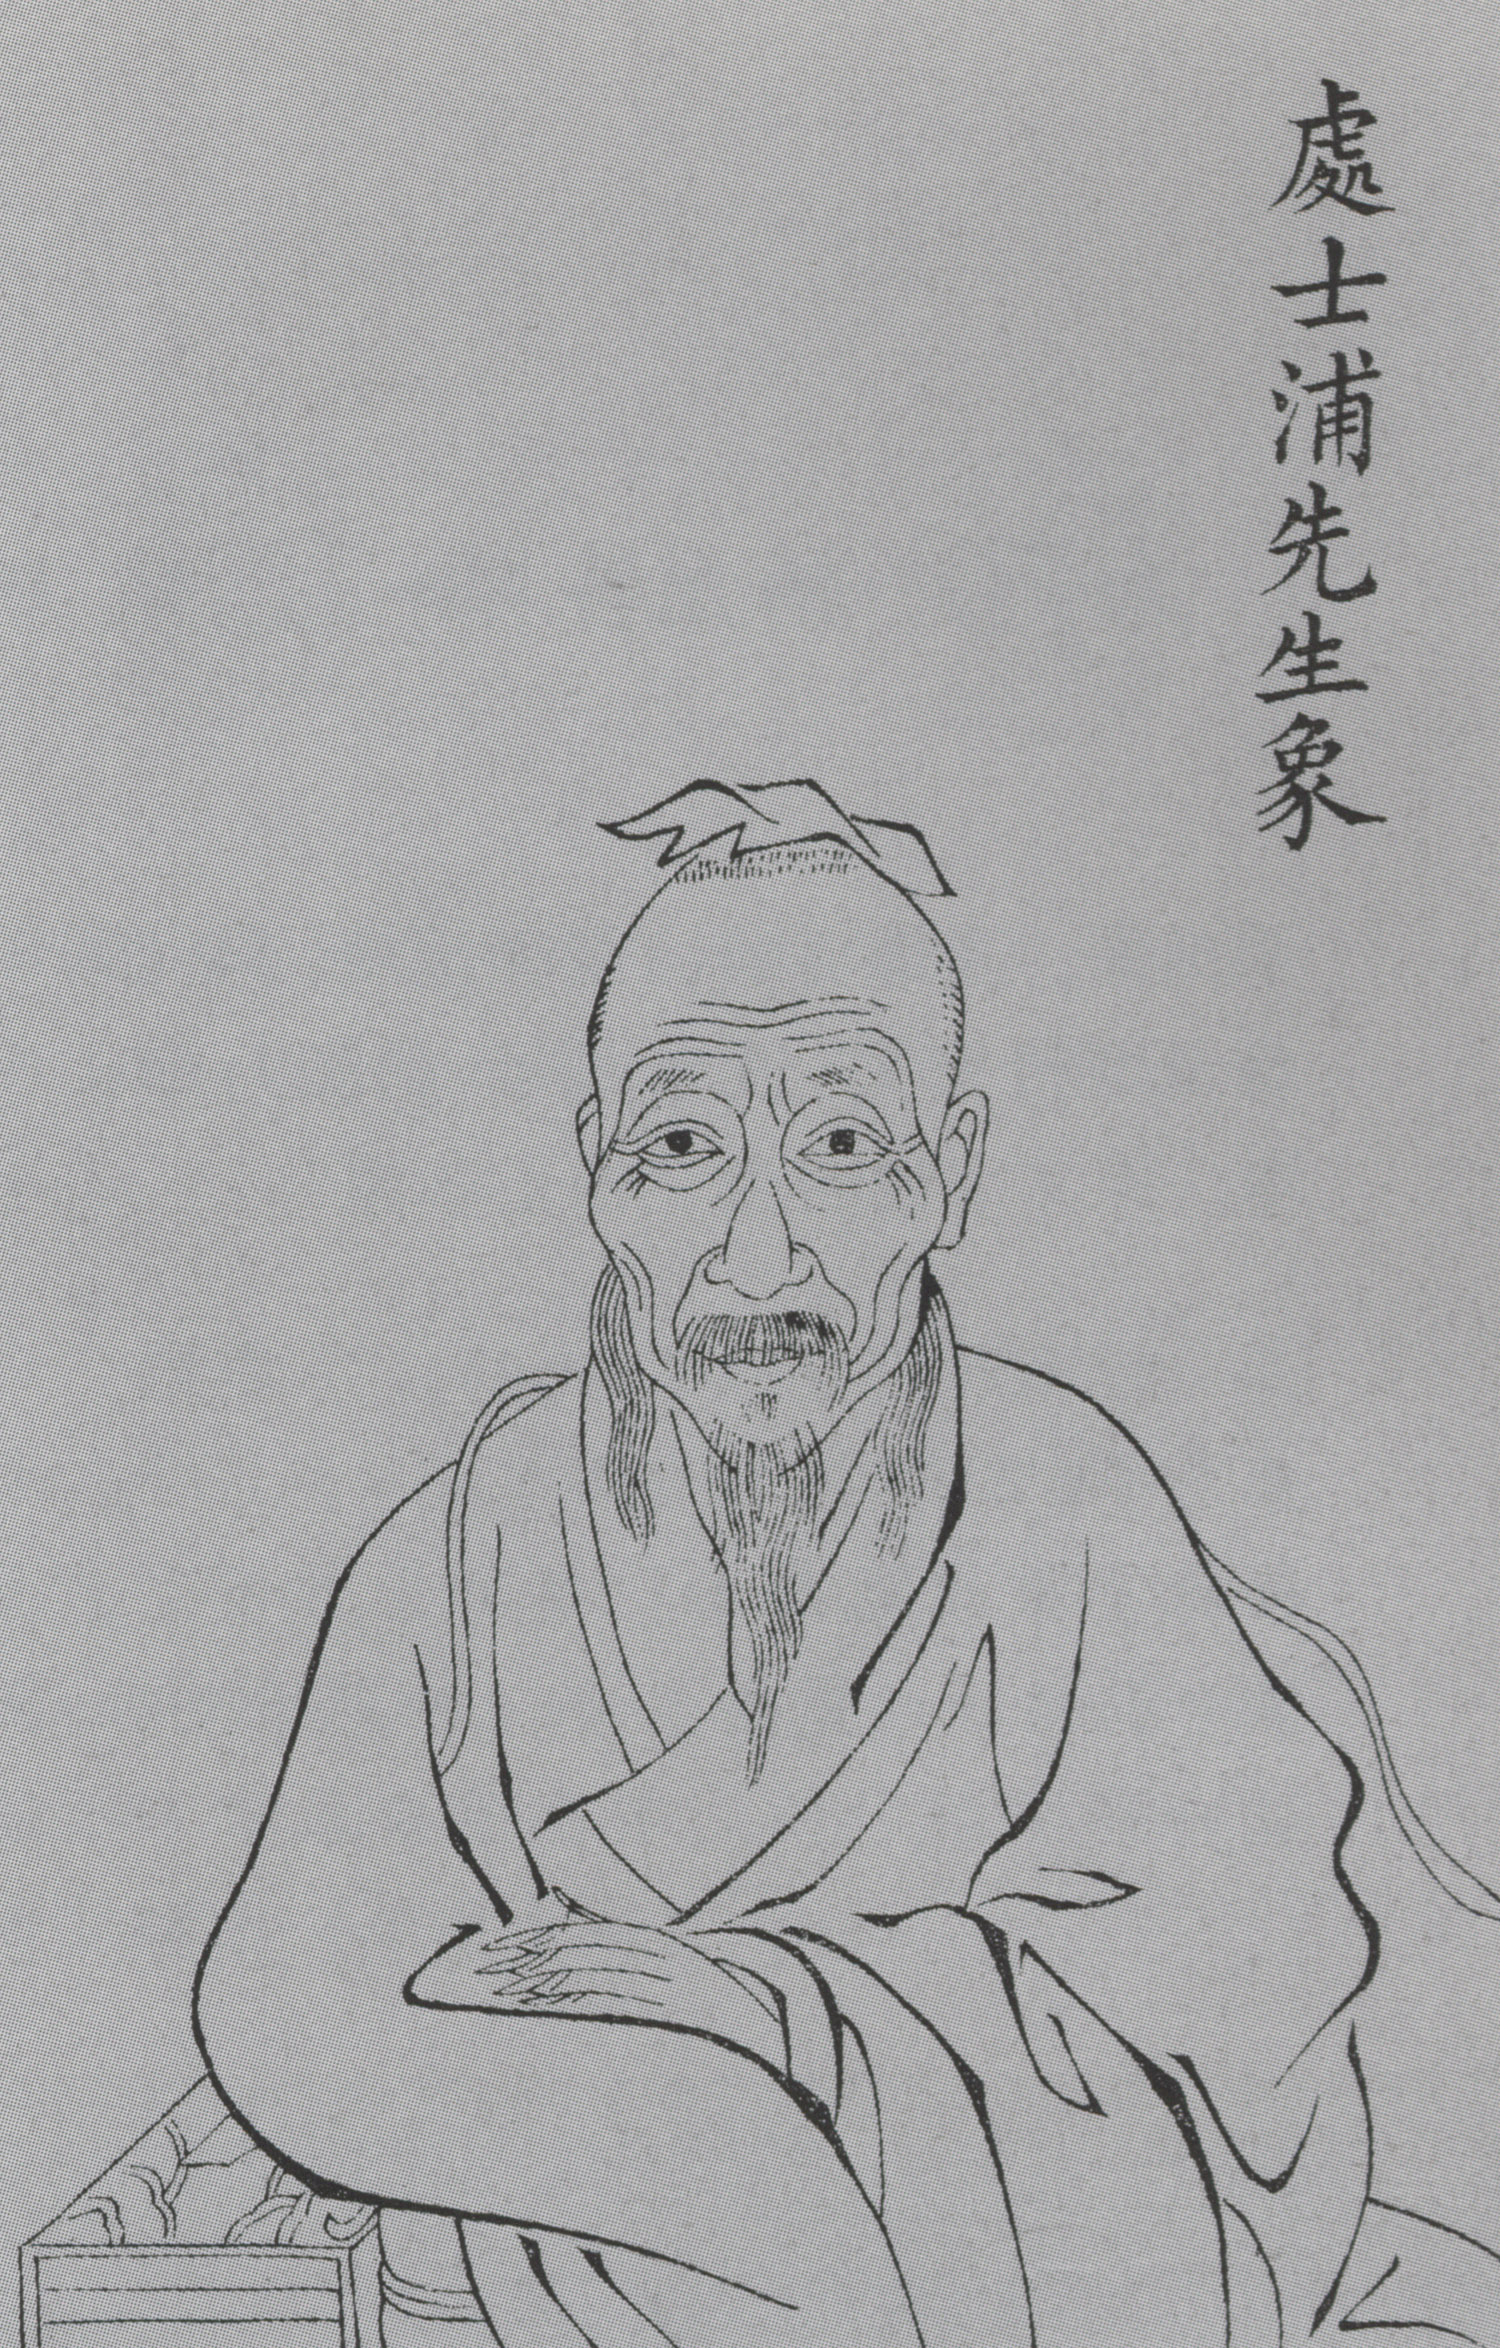 處士浦先生象